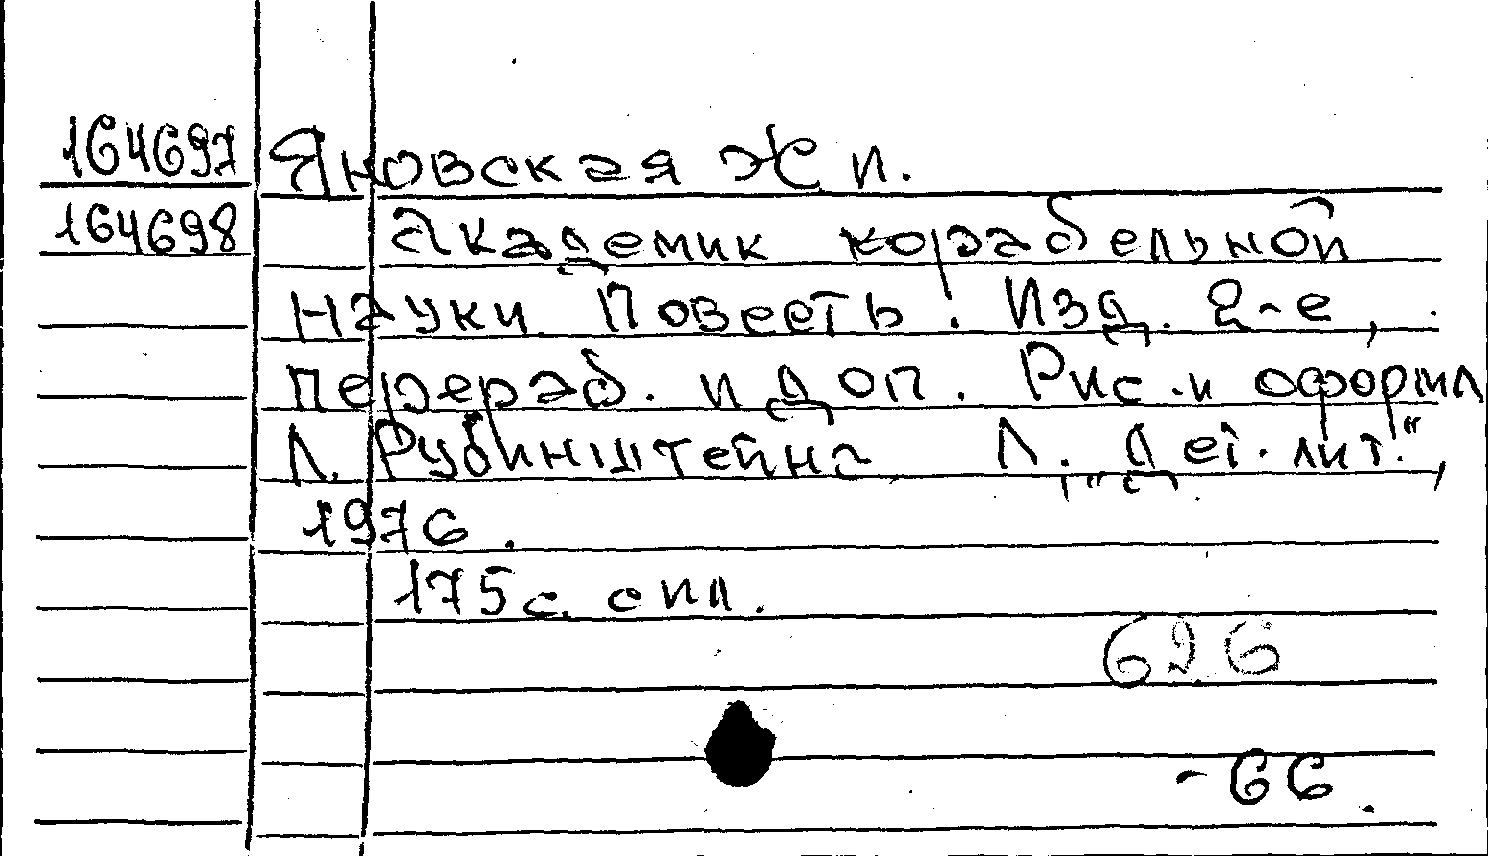 164697 Яновская Ж И.
164698 Академик корабельной
науки. Повесть. Изд. 2-е,
перераб. и доп. Рис. и оформл
Л. Рубинштейна Л. "Дет. лит.",
1976.
175 с. с ил.
626
-66.